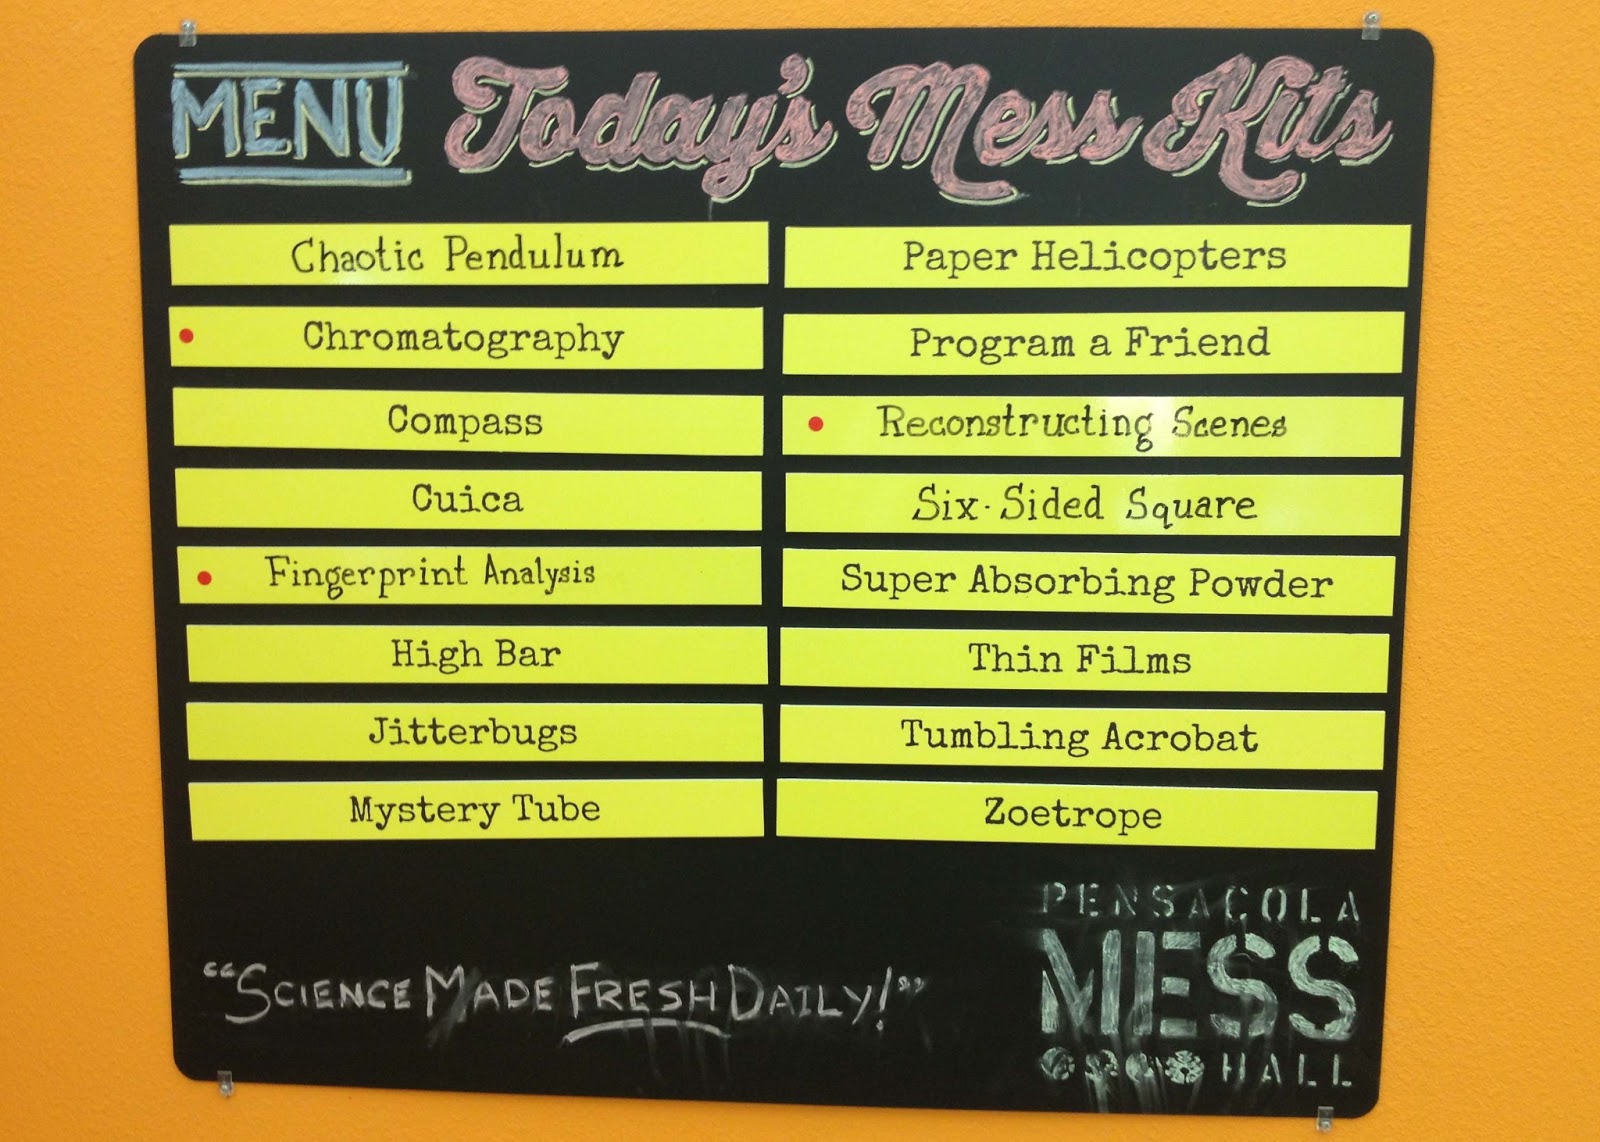 MENU Today's Mess Kits
Chaotic Pendulum
Chromatography
Compass
Cuica
Fingerprint Analysis
High Bar
Jitterbugs
Mystery Tube
Paper Helicopters
Program a Friend
Reconstructing Scenes
Six-Sided Square
Super Absorbing Powder
Thin Films
Tumbling Acrobat
Zoetrope
"SCIENCE MADE FRESH DAILY!"
PENSACOLA
MESS
HALL